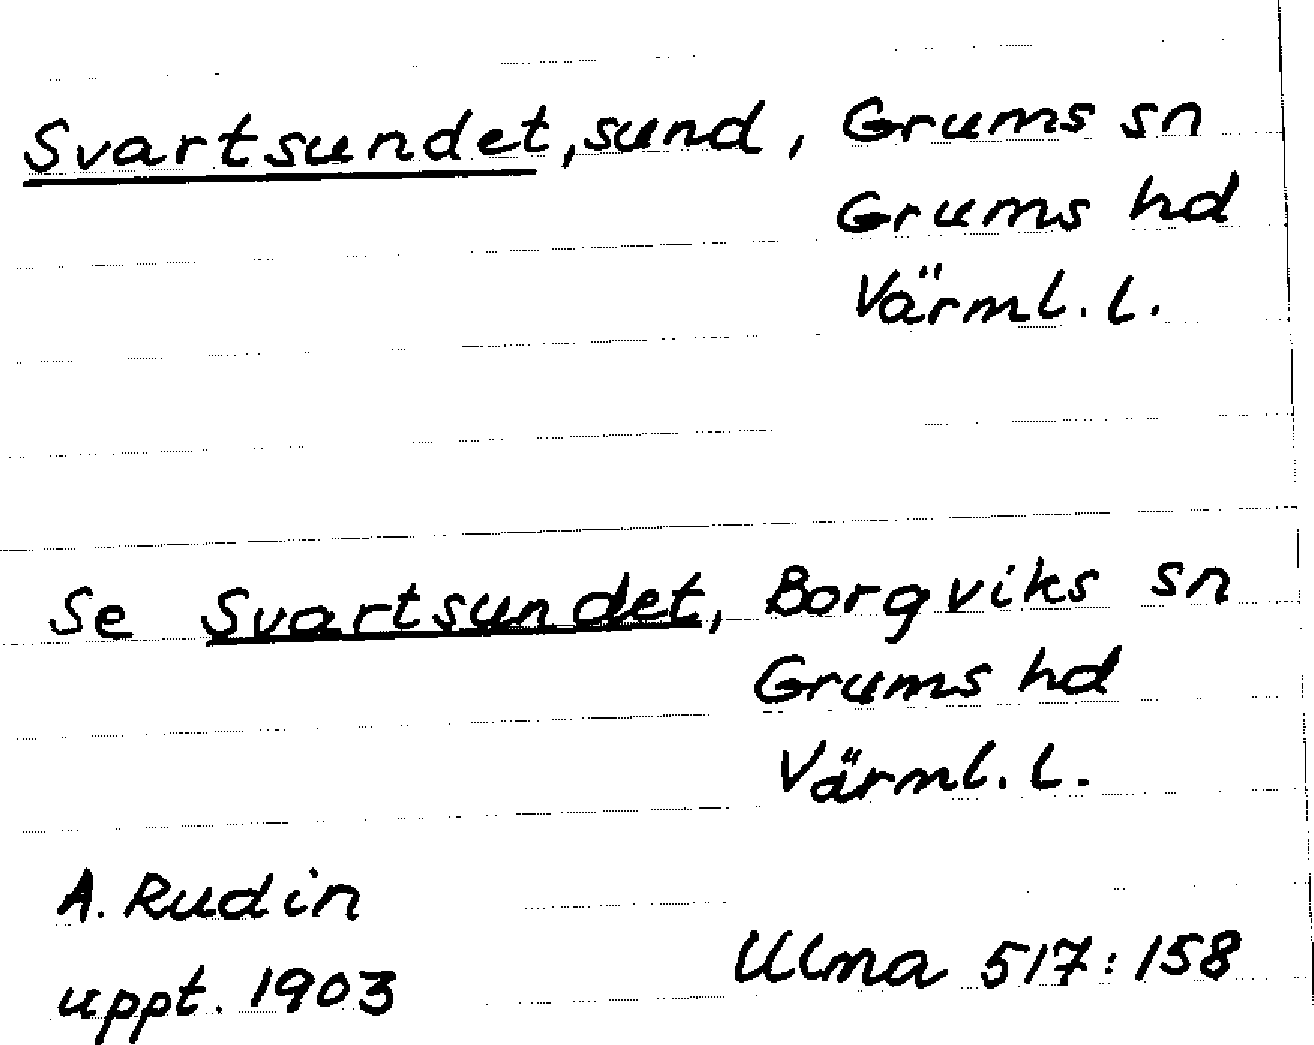 Svartsundet, sund, Grums sn
Grums hd
Värml. l.
Se Svartsundet, Borgviks sn
Grums hd
Värml. l.
A. Rudin
uppt. 1903
Ulma 517:158